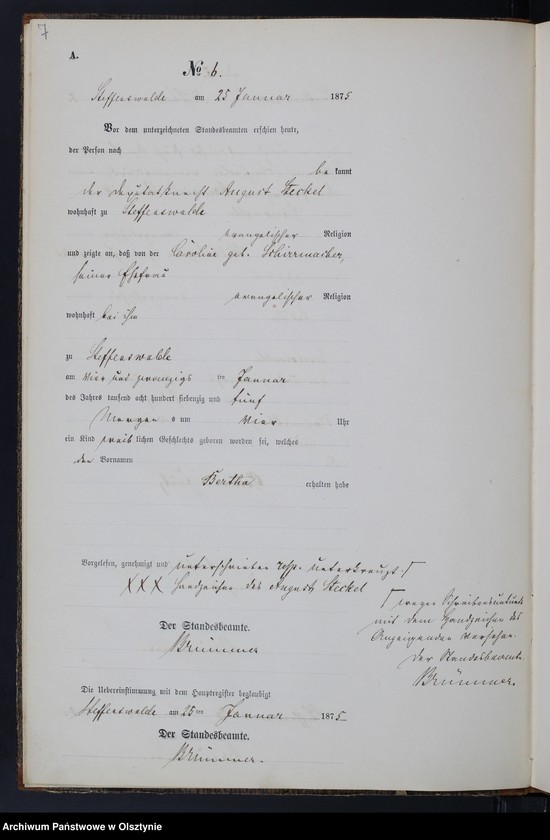 7
A.
№ 6.
Steffenswalde am 25 Januar 1875
Vor dem unterzeichneten Standesbeamten erschien heute,
der Person nach
be kannt
der Deputatknecht August Steckel
wohnhaft zu Steffenswalde
evangelischer Religion
und zeigte an, daß von der Caroline geb. Schirrmacher,
seiner Ehefrau
evangelischer Religion
wohnhaft bei ihm
zu Steffenswalde
am vier und zwanzigs ten Januar
des Jahres tausend acht hundert siebenzig und fünf
Morgens um vier Uhr
ein Kind weib lichen Geschlechts geboren worden sei, welches
den Vornamen
Bertha erhalten habe
Vorgelesen, genehmigt und unterschrieben resp. unterkreuzt.
XXX Handzeichen des August Steckel
wegen Schreibensunkunde
mit dem Handzeichen des
Anzeigenden versehen.
Der Standesbeamte
Brümmer.
Der Standesbeamte.
Brümmer
Die Uebereinstimmung mit dem Hauptregister beglaubigt
Steffenswalde am 25 ten Januar 1875
Der Standesbeamte.
Brümmer.
Archiwum Państwowe w Olsztynie